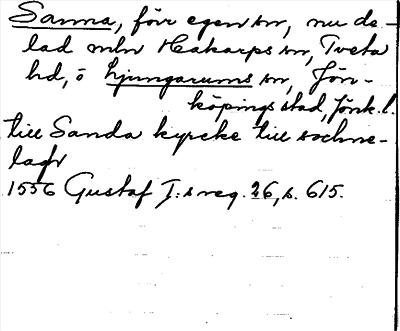 Sanna, förr egen sn, nu de-
lad mln Hakarps sn, Tveta
hd, o Ljungarums sn, Jön-
köpings stad, Jönk. l.
till Sanda kyrcke till sochne-
lagh
1556 Gustaf I:s reg. 26, s. 615.